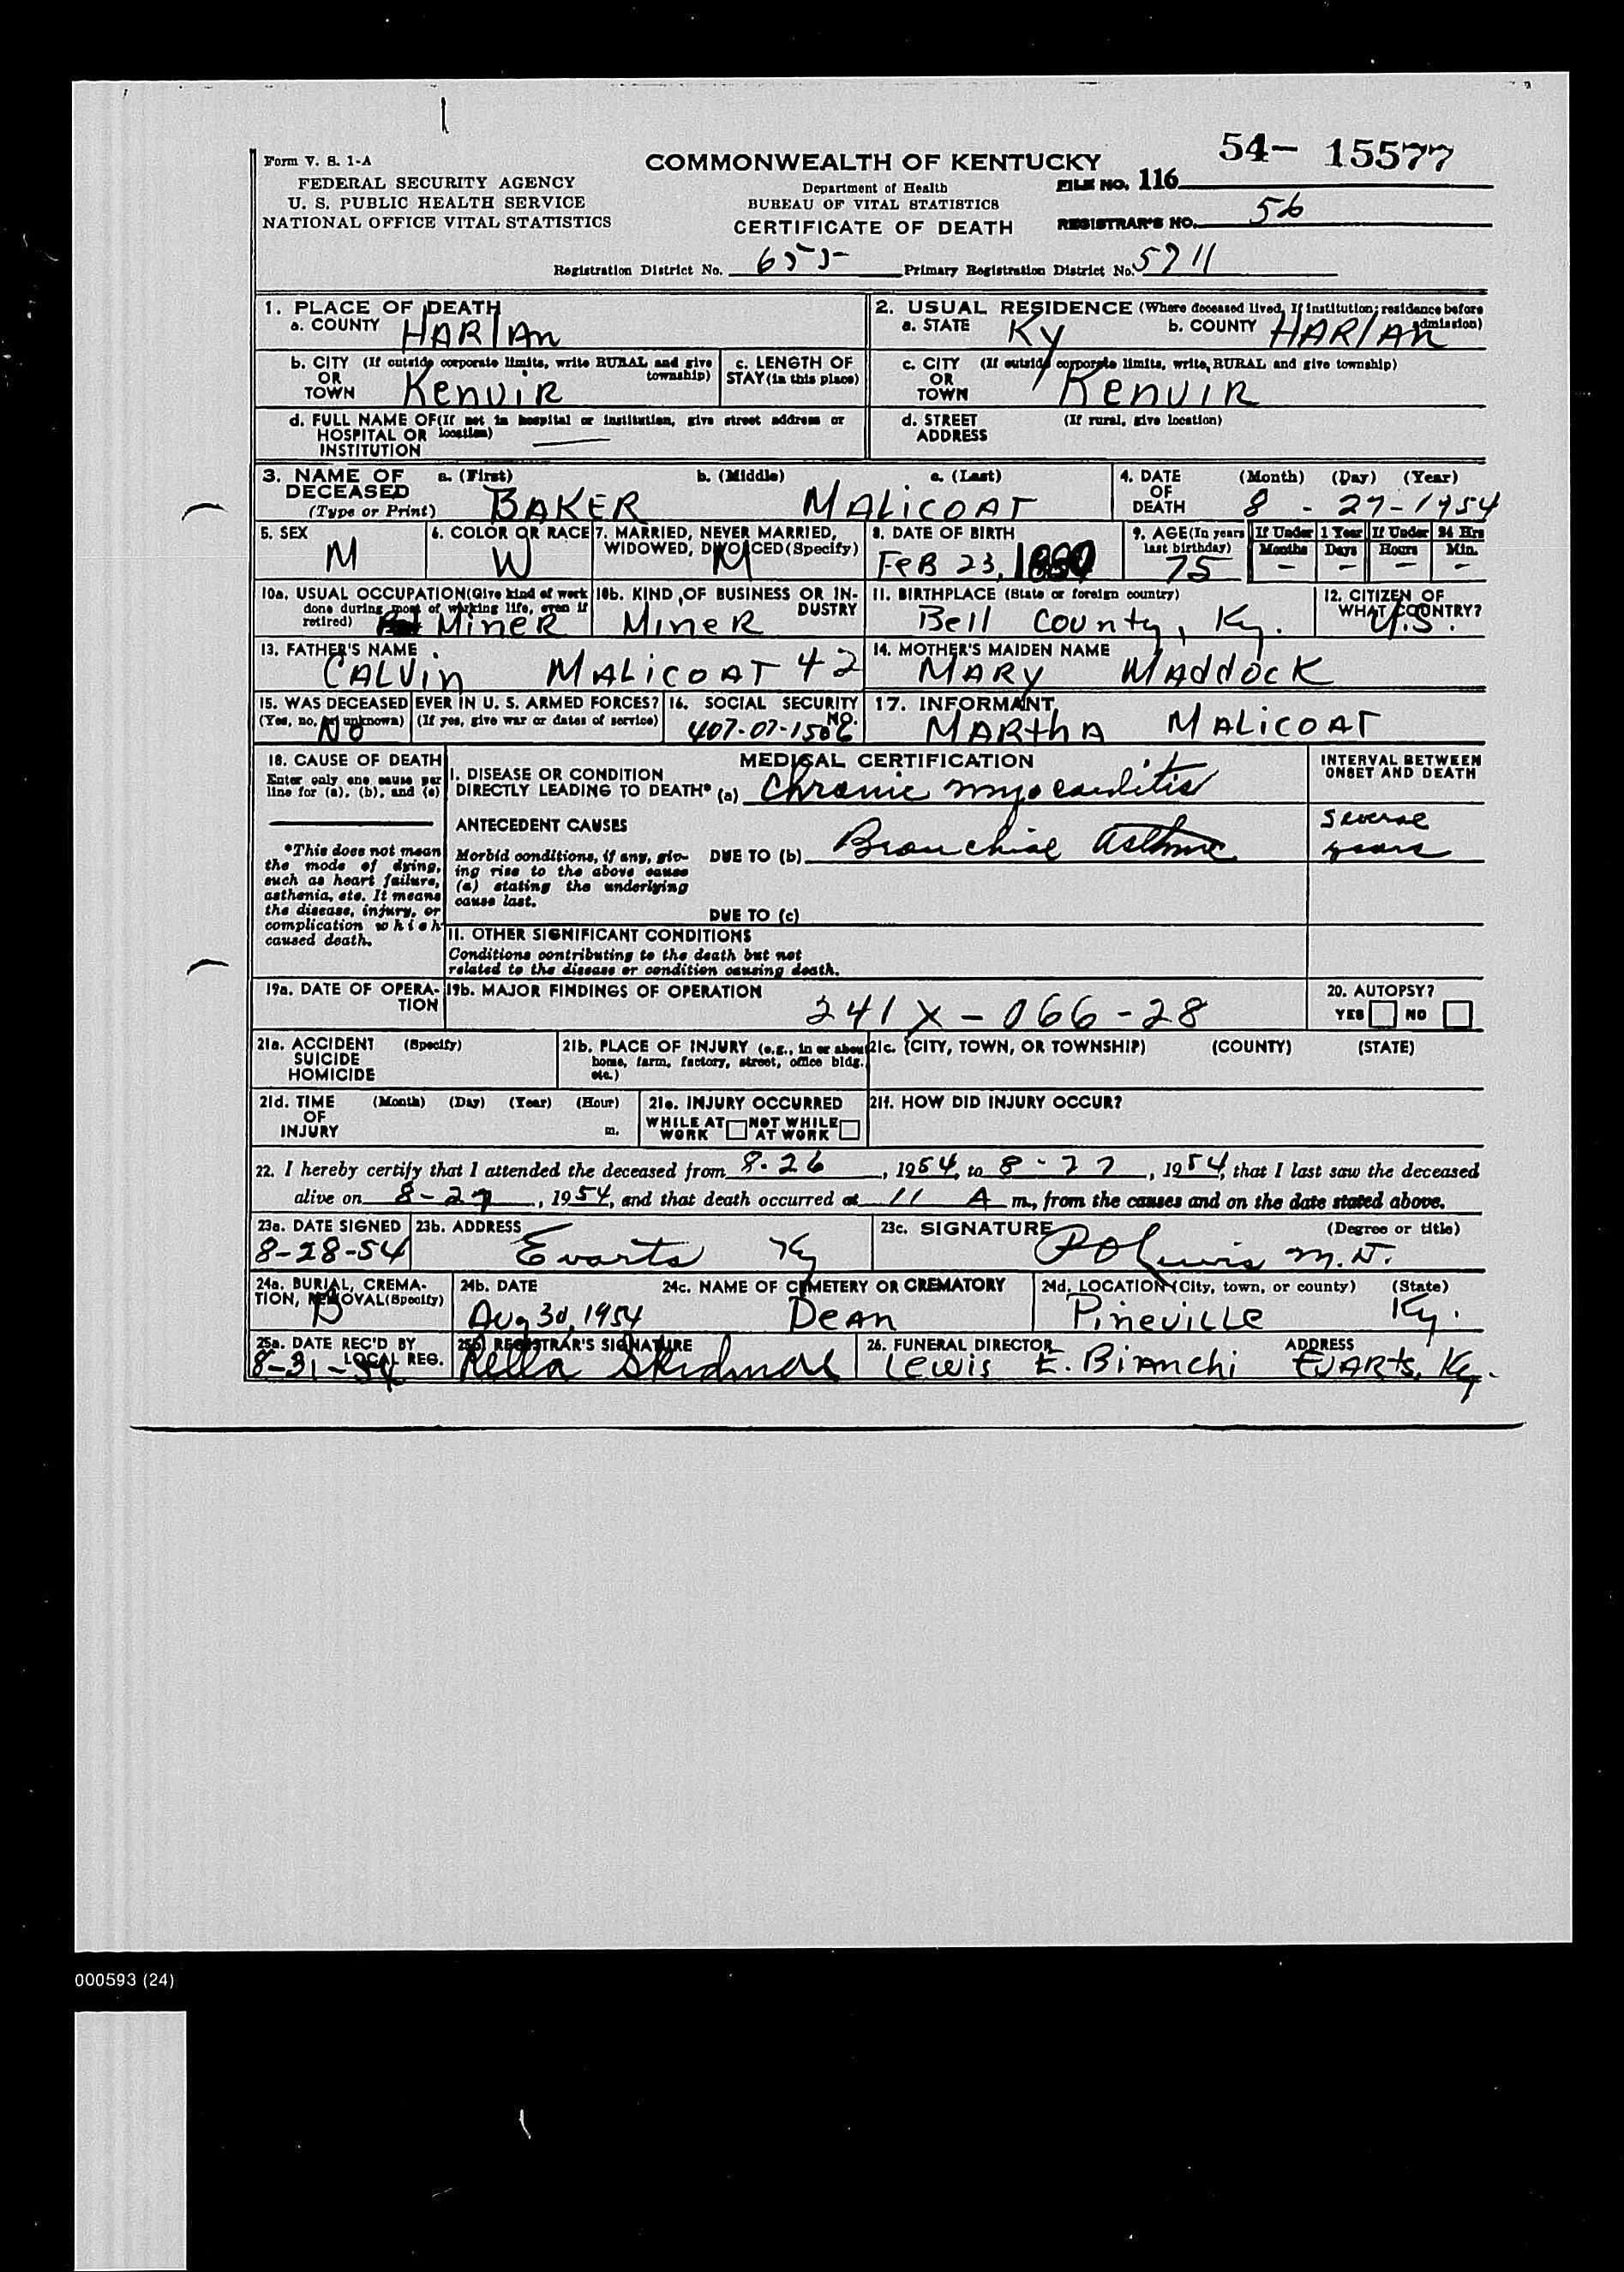 54- 15577
Form V. S. 1-A
FEDERAL SECURITY AGENCY
U. S. PUBLIC HEALTH SERVICE
NATIONAL OFFICE VITAL STATISTICS
COMMONWEALTH OF KENTUCKY
Department of Health
BUREAU OF VITAL STATISTICS
CERTIFICATE OF DEATH
FILE NO. 116
REGISTRAR'S NO. 56
Registration District No. 655 Primary Registration District No. 5711
1. PLACE OF DEATH
a. COUNTY HARlAn
2. USUAL RESIDENCE (Where deceased lived. If institution: residence before admission)
a. STATE Ky b. COUNTY HARlAn
b. CITY (If outside corporate limits, write RURAL and give township)
OR
TOWN KenviR
c. LENGTH OF
STAY (in this place)
c. CITY (If outside corporate limits, write RURAL and give township)
OR
TOWN KenviR
d. FULL NAME OF (If not in hospital or institution, give street address or location)
HOSPITAL OR
INSTITUTION
d. STREET (If rural, give location)
ADDRESS
3. NAME OF DECEASED
(Type or Print)
a. (First) b. (Middle) c. (Last)
BAKER MALICOAT
4. DATE OF DEATH (Month) (Day) (Year)
8 - 27-1954
5. SEX
M
6. COLOR OR RACE
W
7. MARRIED, NEVER MARRIED,
WIDOWED, DIVORCED (Specify)
M
8. DATE OF BIRTH
FeB 23,
9. AGE (In years last birthday)
75
If Under 1 Year If Under 24 Hrs
Months Days Hours Min.
- - - -
10a. USUAL OCCUPATION (Give kind of work done during most of working life, even if retired)
MineR
10b. KIND OF BUSINESS OR INDUSTRY
MineR
11. BIRTHPLACE (State or foreign country)
Bell County, Ky.
12. CITIZEN OF WHAT COUNTRY?
U.S.
13. FATHER'S NAME
CALVin MALICOAT 42
14. MOTHER'S MAIDEN NAME
MARy MAddocK
15. WAS DECEASED EVER IN U. S. ARMED FORCES?
(Yes, no, or unknown) (If yes, give war or dates of service)
No
16. SOCIAL SECURITY NO.
407-07-1506
17. INFORMANT
MARthA MALICOAT
18. CAUSE OF DEATH
Enter only one cause per
line for (a), (b), and (c)
*This does not mean
the mode of dying,
such as heart failure,
asthenia, etc. It means
the disease, injury, or
complication which
caused death.
MEDICAL CERTIFICATION
INTERVAL BETWEEN
ONSET AND DEATH
I. DISEASE OR CONDITION
DIRECTLY LEADING TO DEATH* (a) Chronic myocarditis
ANTECEDENT CAUSES
Morbid conditions, if any, giving rise to the above cause (a) stating the underlying cause last.
DUE TO (b) Bronchial Asthma
Several
years
DUE TO (c)
II. OTHER SIGNIFICANT CONDITIONS
Conditions contributing to the death but not
related to the disease or condition causing death.
19a. DATE OF OPERATION
19b. MAJOR FINDINGS OF OPERATION
241X-066-28
20. AUTOPSY?
YES NO
21a. ACCIDENT (Specify)
SUICIDE
HOMICIDE
21b. PLACE OF INJURY (e.g., in or about home, farm, factory, street, office bldg., etc.)
21c. (CITY, TOWN, OR TOWNSHIP) (COUNTY) (STATE)
21d. TIME (Month) (Day) (Year) (Hour)
OF
INJURY m.
21e. INJURY OCCURRED
WHILE AT WORK NOT WHILE AT WORK
21f. HOW DID INJURY OCCUR?
22. I hereby certify that I attended the deceased from 8-26, 1954, to 8-27, 1954, that I last saw the deceased
alive on 8-27, 1954, and that death occurred at 11 A m., from the causes and on the date stated above.
23a. DATE SIGNED
8-28-54
23b. ADDRESS
Evarts Ky
23c. SIGNATURE (Degree or title)
P O Lewis M.D.
24a. BURIAL, CREMATION, REMOVAL (Specify)
B
24b. DATE
Aug 30, 1954
24c. NAME OF CEMETERY OR CREMATORY
DeAn
24d. LOCATION (City, town, or county) (State)
Pineville Ky.
25a. DATE REC'D BY LOCAL REG.
8-31-54
25b. REGISTRAR'S SIGNATURE
Rella Skidmore
26. FUNERAL DIRECTOR ADDRESS
Lewis E. Bianchi EvARts, Ky.
000593 (24)